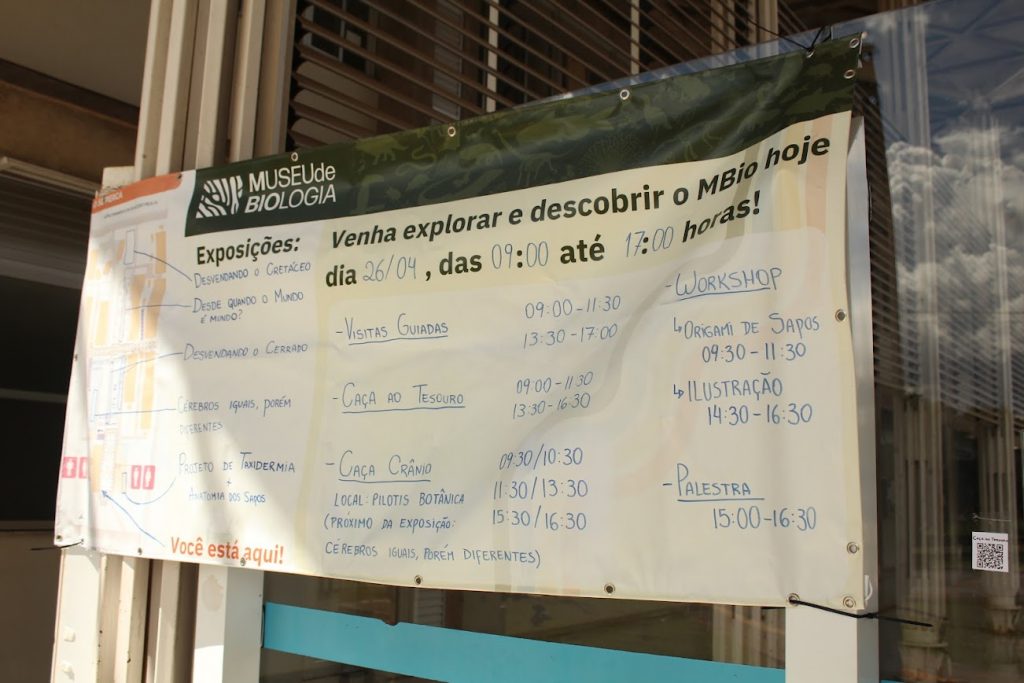 MUSEU de
BIOLOGIA
Venha explorar e descobrir o MBio hoje
dia 26/04, das 09:00 até 17:00 horas!
Exposições:
DESVENDANDO O CRETÁCEO
DESDE QUANDO O MUNDO
É MUNDO?
DESVENDANDO O CERRADO
CÉREBROS IGUAIS, PORÉM
DIFERENTES
PROJETO DE TAXIDERMIA
+
ANATOMIA DOS SAPOS
Você está aqui!
- VISITAS GUIADAS
09:00 - 11:30
13:30 - 17:00
- CAÇA AO TESOURO
09:00 - 11:30
13:30 - 16:30
- CAÇA CRÂNIO
LOCAL: PILOTIS BOTÂNICA
(PRÓXIMO DA EXPOSIÇÃO:
CÉREBROS IGUAIS, PORÉM DIFERENTES)
09:30/10:30
11:30/13:30
15:30/16:30
- WORKSHOP
↳ ORIGAMI DE SAPOS
09:30 - 11:30
↳ ILUSTRAÇÃO
14:30 - 16:30
- PALESTRA
15:00 - 16:30